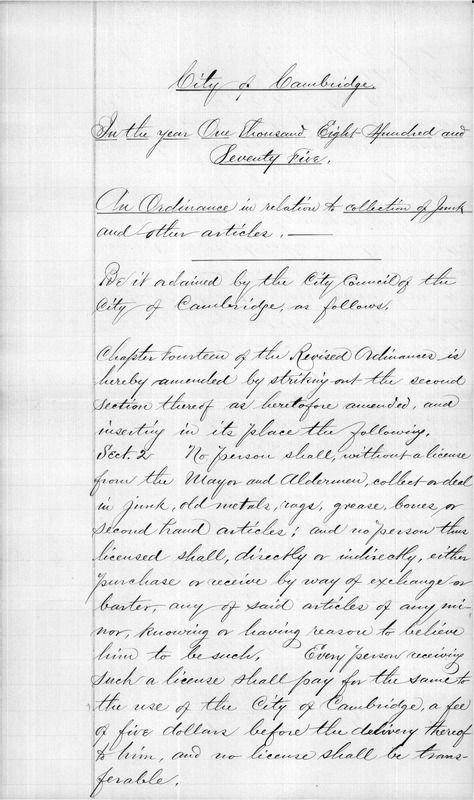 City of Cambridge.
In the year One Thousand Eight Hundred and
Seventy Five.
An Ordinance in relation to collection of Junk
and other articles. —
Be it ordained by the City Council of the
City of Cambridge, as follows.
Chapter Fourteen of the Revised Ordinances is
hereby amended by striking out the second
Section thereof as heretofore amended, and
inserting in its place the following.
Sect. 2 No person shall, without a license
from the Mayor and Aldermen, collect or deal
in junk, old metals, rags, grease, bones, or
second hand articles; and no person thus
licensed shall, directly or indirectly, either
purchase or receive by way of exchange or
barter, any of said articles of any mi-
nor, knowing or having reason to believe
him to be such. Every person receiving
such a license shall pay for the same to
the use of the City of Cambridge, a fee
of five dollars before the delivery thereof
to him, and no license shall be trans-
ferable.